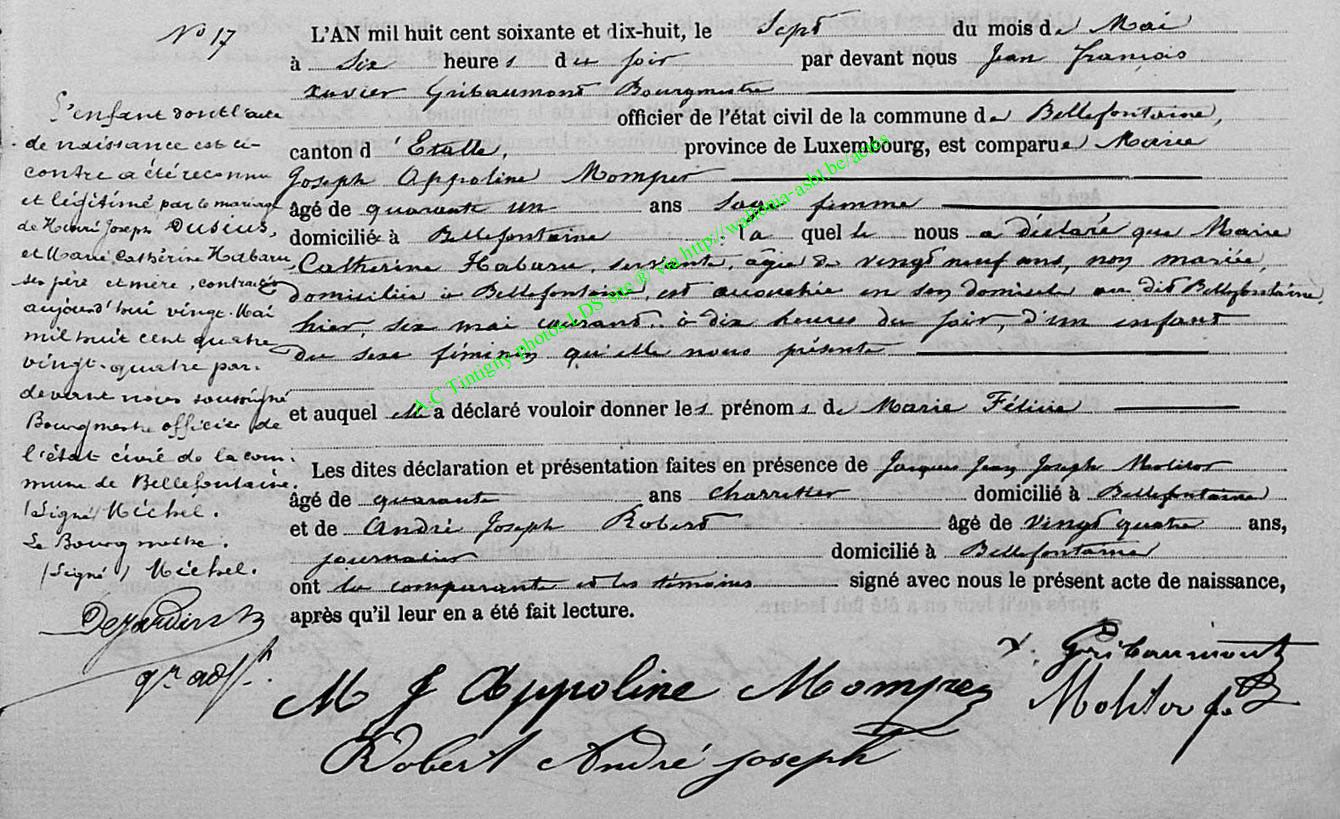 No 17
L'AN mil huit cent soixante et dix-huit, le Sept du mois de Mai
à Six heures du soir par devant nous Jean François
Xavier Gribaumont Bourgmestre
officier de l'état civil de la commune de Bellefontaine,
canton d'Etalle, province de Luxembourg, est comparue Marie
Joseph Appoline Momper
âgé de quarante un ans Sage femme
domicilié à Bellefontaine la quelle nous a déclaré que Marie
Catherine Habaru, servante, agée de vingt neuf ans, non mariée,
domiciliée à Bellefontaine, est accouchée en son domicile au dit Bellefontaine,
hier six mai courant à dix heures du soir, d'un enfant
du sexe féminin qu'elle nous présente
et auquel elle a déclaré vouloir donner les prénoms de Marie Félicie
Les dites déclaration et présentation faites en présence de Jacques Jean Joseph Molitor
âgé de quarante ans charretier domicilié à Bellefontaine
et de André Joseph Robert âgé de vingt quatre ans,
journalier domicilié à Bellefontaine
ont la comparante et les témoins signé avec nous le présent acte de naissance,
après qu'il leur en a été fait lecture.
L'enfant dont l'acte
de naissance est ci-
contre a été reconnu
et légitimé par le mariage
de Henri Joseph Dusius,
et Marie Catherine Habaru
ses père et mère, contracté
aujourd'hui vingt Mai
mil huit cent quatre
vingt-quatre par-
devant nous soussigné
Bourgmestre officier de
l'état civil de la com-
mune de Bellefontaine.
(Signé) Michel.
Le Bourgmestre.
(Signé) Michel.
Dejardin
gr. adj.
X. Gribaumont
M J Appoline Momper
Molitor J. J.
Robert André Joseph
A.C Tintigny photos LDS site ® via http://wallonia-asbl.be/actes